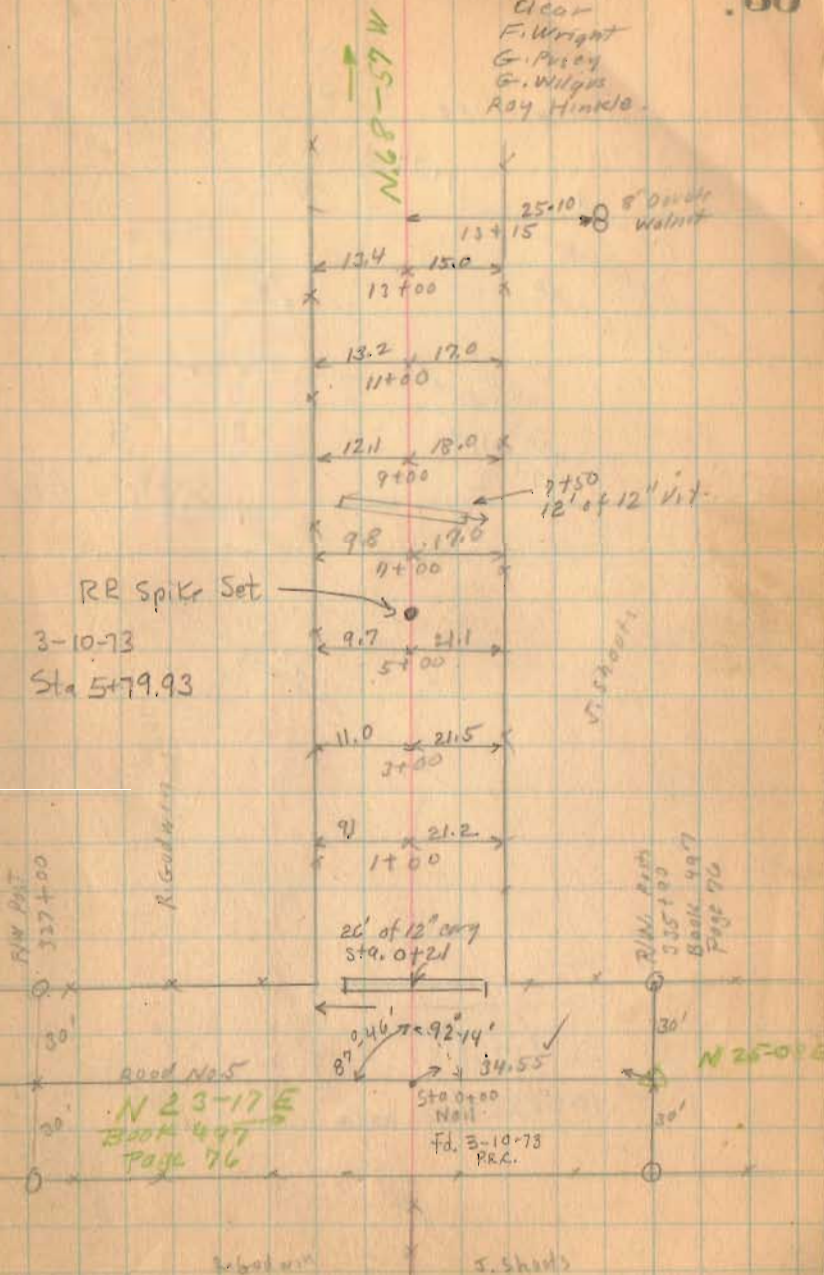 Clear
F. Wright
G. Pusey
G. Wilgus
Roy Hinkle.
.60
N.68-57 W
25.10
8" Double
Walnut
13+15
13.4 15.0
13+00
13.2 17.0
11+00
12.1 18.0
9+00
7+50
12' of 12" Vit.
9.8 17.6
7+00
RR Spike Set
3-10-73
Sta 5+79.93
9.7 21.1
5+00
J. Shoots
11.0 21.5
3+00
R. Godwin
91 21.2
1+00
R/W Post
327+00
R/W. Posts
325+90
Book 497
Page 76
26' of 12" cmg
Sta. 0+21
30'
87° 46'
92°-14'
30'
34.55
N 25-09 E
Road No. 5
N 23-17 E
Book 497
Page 76
Sta 0+00
Nail
Fd. 3-10-73
P.R.C.
30'
30'
R. Godwin
J. Shoots